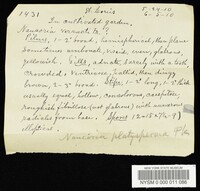 1431 St. Louis 5-24-10
6-2-10
In cultivated garden,
Naucoria vernacl. N.Y.?
Pileus, 1-2' broad, hemispherical, then plane
sometimes umbonate, viscid, viscy, glabrous,
yellowish. Gills, adnate, barely with a tooth,
crowded, ventricose, pallid, then dingy
brown, 2-3' broad. Stipe, 1-2' long, 1-2' thick
usually equal, hollow, concolorous, caespitose,
roughish fibrillose (not glabrous) with numerous
particles from loam. Spores 12-15 x 7-8
elliptical.
Naucoria platyspora Pk
NEW YORK STATE MUSEUM
NYSM D 000 011 086